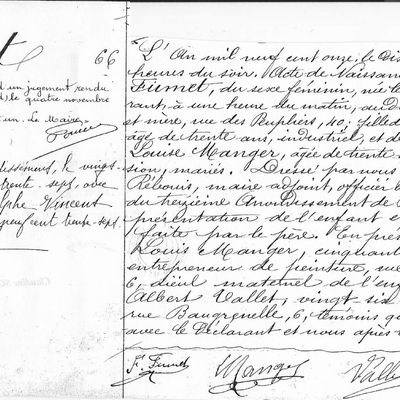 66
un jugement rendu
le quatre novembre
un. Le Maire,
le vingt
trente-sept, avec
Vincent
neuf cent trente-sept
L'An mil neuf cent onze, le Dix
heures du soir. Acte de Naissan
Fumet, du sexe féminin, née le
rant, à une heure du matin, au D
et mère, rue des Peupliers, 40; fille d
âgé de trente ans, industriel, et d
Louise Manger, âgée de trente
sion, mariés. Dressé par nous
Rebouis, maire adjoint, officier
du treizième Arrondissement de
présentation de l'enfant e
faite par le père. En pré
Louis Manger, cinquan
entrepreneur de peinture, rue
6, aïeul maternel de l'en
Albert Vallet, vingt six
rue Beaugrenelle, 6, témoins qu
avec le Déclarant et nous après
F. Fumet Manger Valle